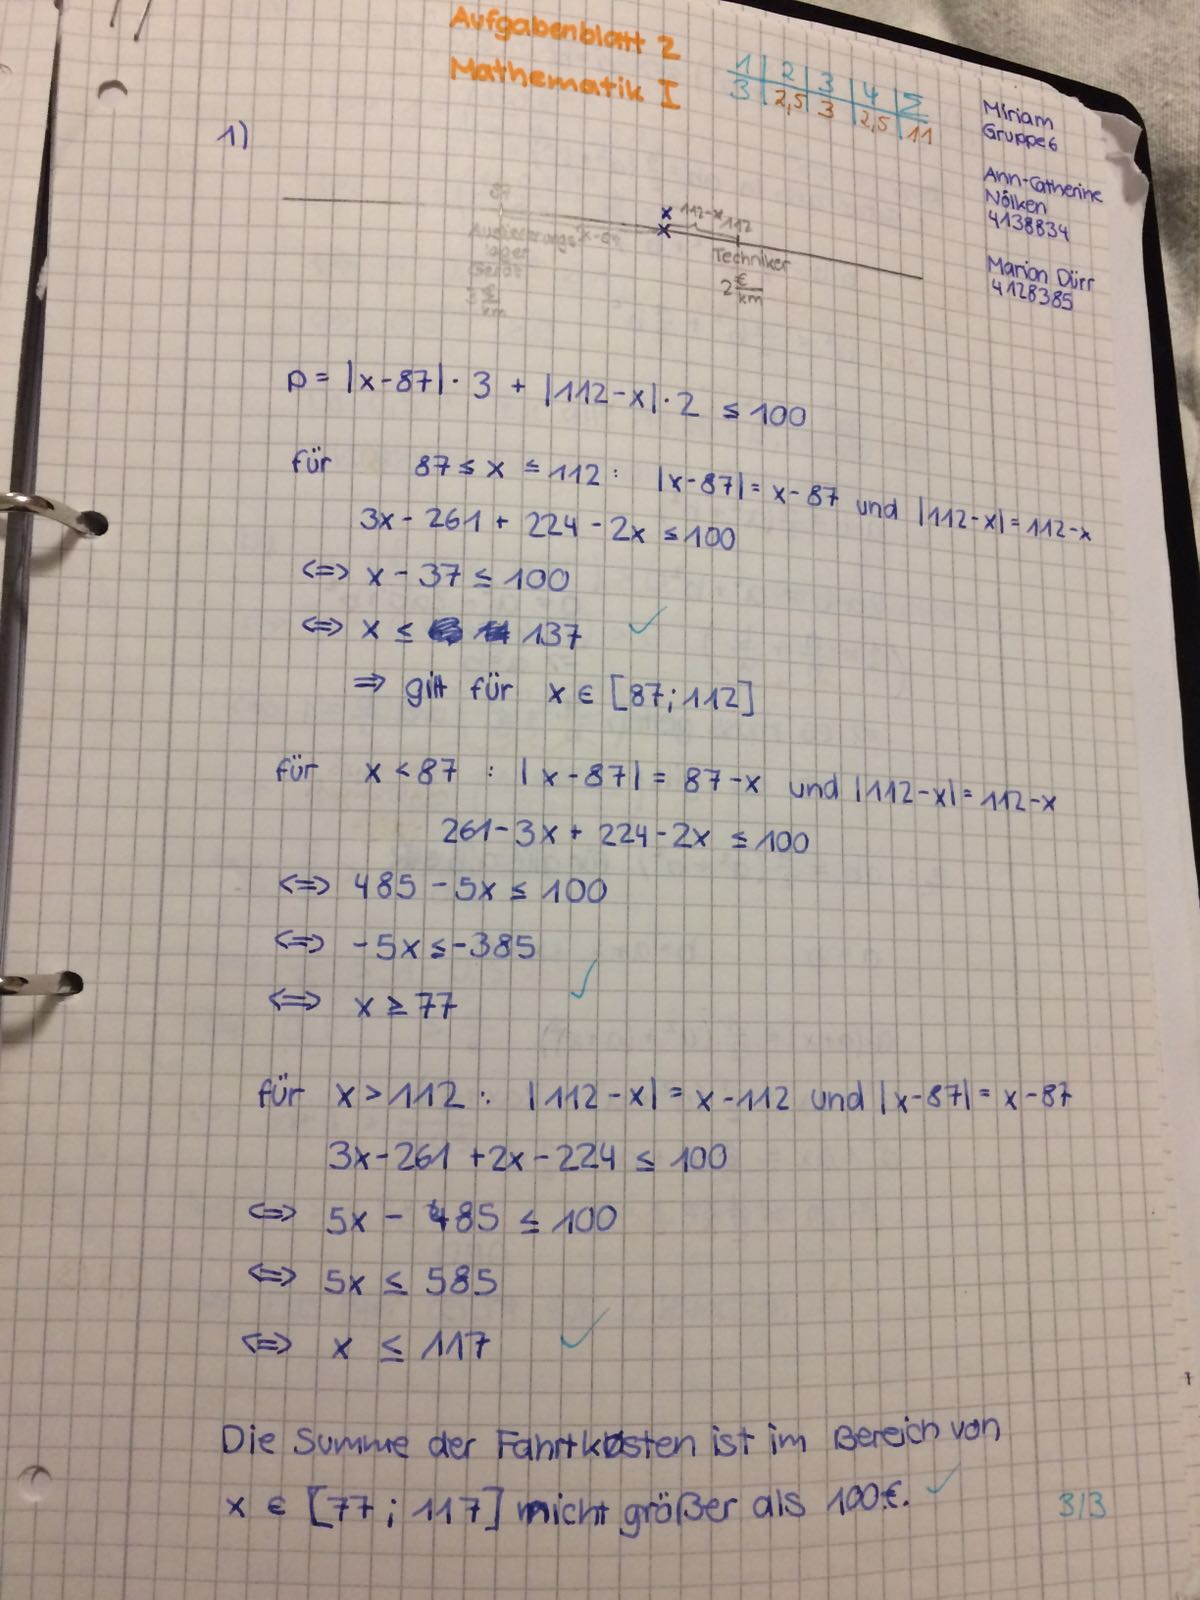 Aufgabenblatt 2
Mathematik I
1 | 2 | 3 | 4 | Σ
3 | 2,5 | 3 | 2,5 | 11
Miriam
Gruppe 6
Ann-Catherine
Nölken
4138834
Marion Dürr
4128385
1)
x 112-x 112
x
Techniker
2 €/km
p = |x-87| · 3 + |112-x| · 2 ≤ 100
für 87 ≤ x ≤ 112 : |x-87| = x-87 und |112-x| = 112-x
3x - 261 + 224 - 2x ≤ 100
<=> x - 37 ≤ 100
<=> x ≤ 137 ✓
=> gilt für x ∈ [87 ; 112]
für x < 87 : |x-87| = 87-x und |112-x| = 112-x
261 - 3x + 224 - 2x ≤ 100
<=> 485 - 5x ≤ 100
<=> -5x ≤ -385
<=> x ≥ 77 ✓
für x > 112 : |112-x| = x-112 und |x-87| = x-87
3x - 261 + 2x - 224 ≤ 100
<=> 5x - 485 ≤ 100
<=> 5x ≤ 585
<=> x ≤ 117 ✓
Die Summe der Fahrtkosten ist im Bereich von
x ∈ [77 ; 117] nicht größer als 100€. ✓
3/3